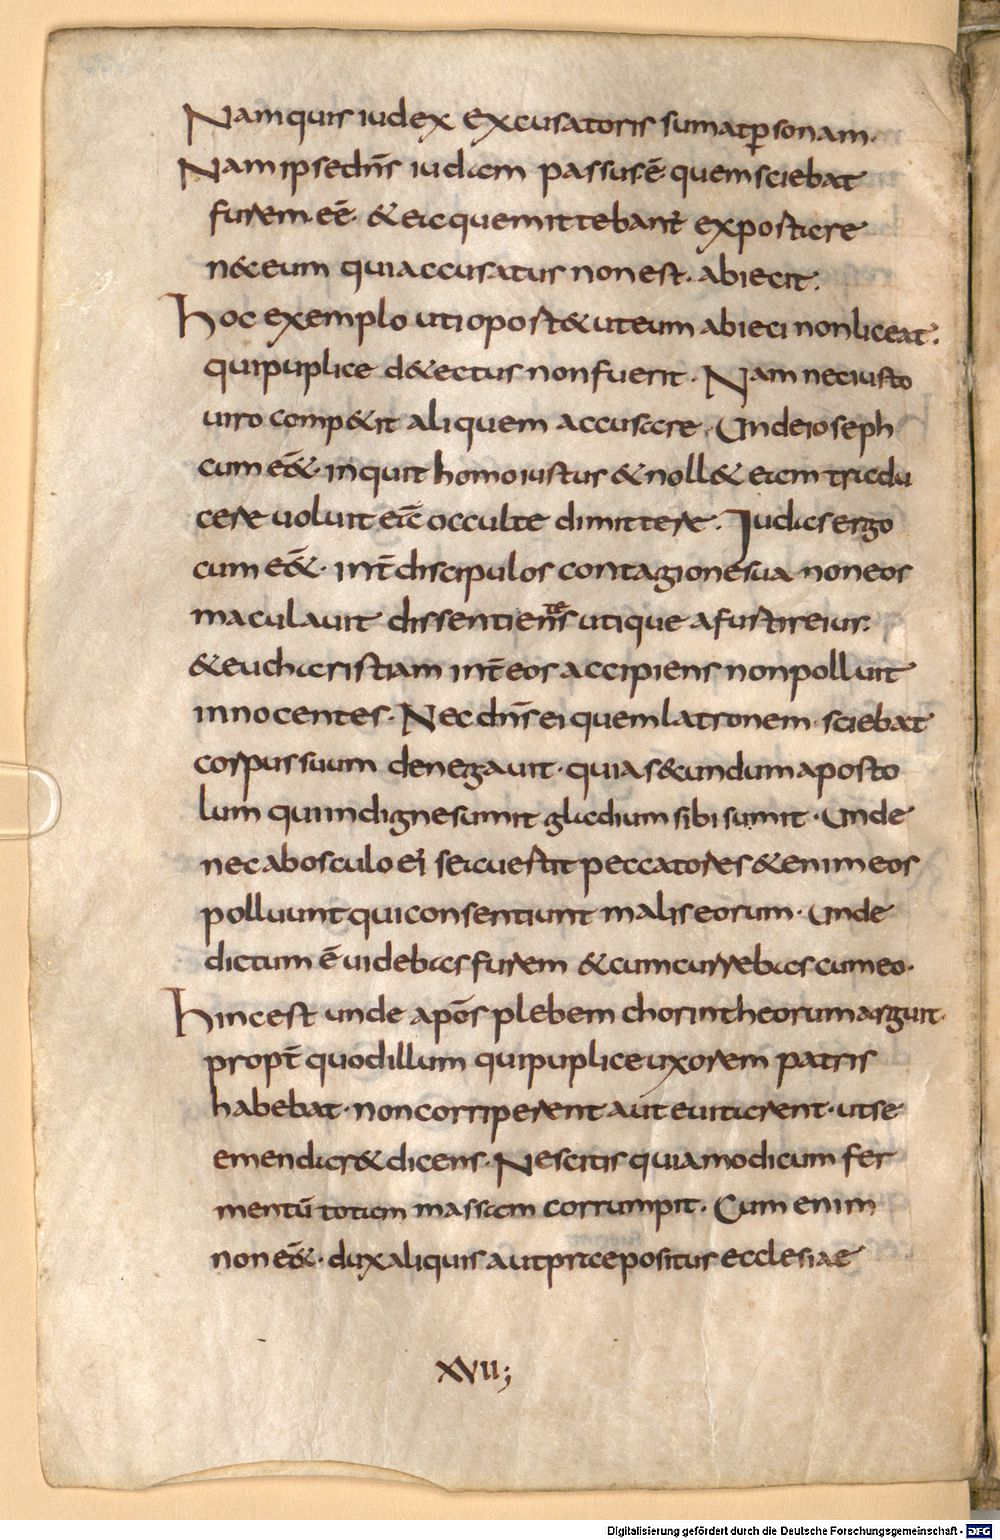 Nam quis iudex excusatoris sumat ꝑsonam.
Nam ipse dn̄s iudam passus ē quem sciebat
furem eē. & ea quę mittebant᷑ exportare
nec eum quia accusatus non est. abiecit.
Hoc exemplo uti oport& ut eum abieci non liceat.
qui puplice det&ectus non fuerit. Nam nec iusto
uiro comp&it aliquem accusare. Unde ioseph
cum eēt. inquit homo iustus & noll& eam tradu
cere uoluit eā occulte dimittere. Iudas ergo
cum eēt. int̄ discipulos contagione sua non eos
maculauit dissentiens utique a fustire ius.
& eucharistiam int̄ eos accipiens non polluit
innocentes. Nec dn̄s ei quem latronem sciebat
corpus suum denegauit. quia secundum aposto
lum qui indigne sumit gladium sibi sumit. Unde
nec ab osculo ei se auertit peccatores &enim eos
polluunt qui consentiunt malis eorum. Unde
dictum ē uidebas furem & cumcurrebas cum eo.
Hinc est unde apo̅s plebem chorintheorum arguit.
propt̄ quod illum qui puplice uxorem patris
habebat. non corriperent aut euitarent. ut se
emendar& dicens. Nescitis quia modicum fer
mentū totam massam corrumpit. Cum enim
non eēt. dux aliquis aut praepositus ecclesiae
XVII;
Digitalisierung gefördert durch die Deutsche Forschungsgemeinschaft - DFG